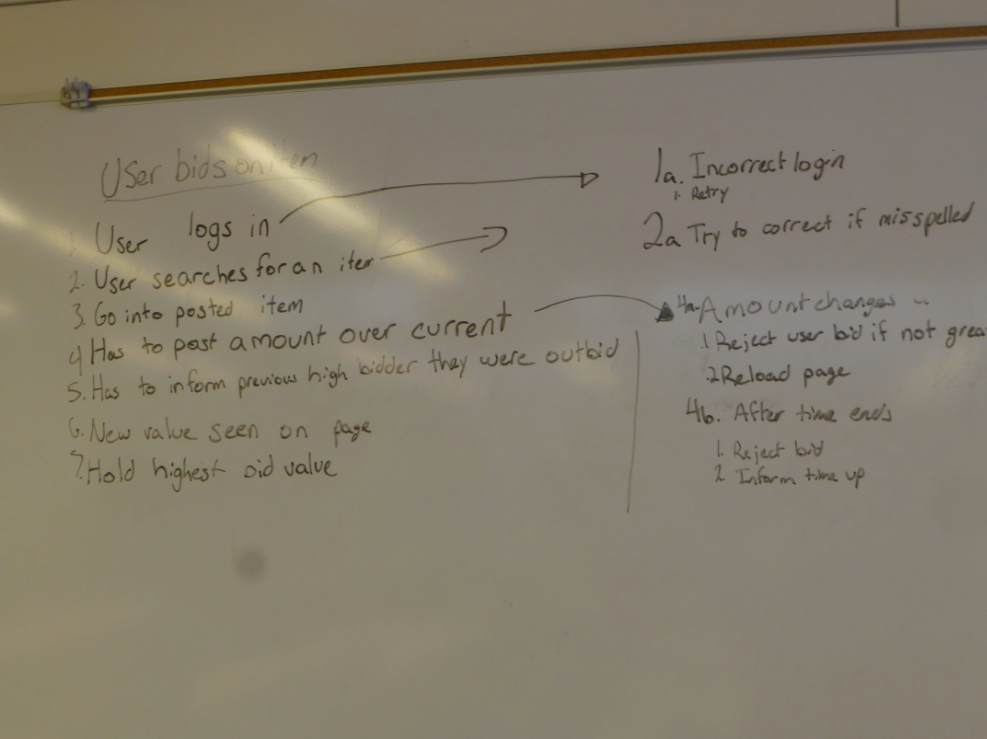 User bids on item
1. User logs in
2. User searches for an item
3. Go into posted item
4 Has to post amount over current
5. Has to inform previous high bidder they were outbid
6. New value seen on page
7. Hold highest bid value
1a. Incorrect login
1. Retry
2a Try to correct if misspelled
4a. Amount changes
1. Reject user bid if not grea
2 Reload page
4b. After time ends
1. Reject bid
2. Inform time up